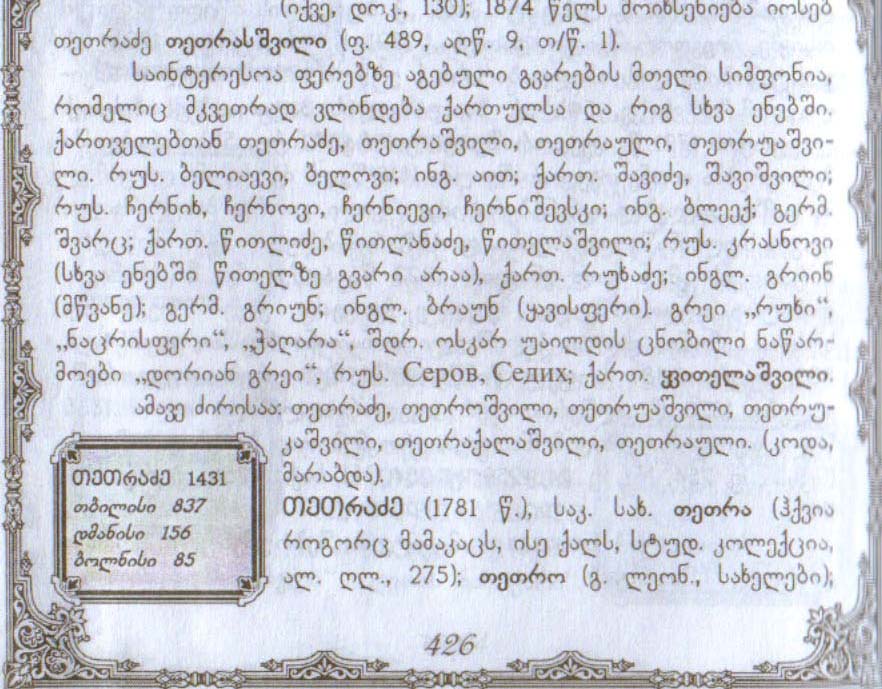 (იქვე, დოკ., 130); 1874 წელს მოიხსენიება იოსებ
თეთრაძე თეთრასშვილი (ფ. 489, აღწ. 9, თ/წ. 1).
საინტერესოა ფერებზე აგებული გვარების მთელი სიმფონია,
რომელიც მკვეთრად ვლინდება ქართულსა და რიგ სხვა ენებში.
ქართველებთან თეთრაძე, თეთრაშვილი, თეთრაული, თეთრუაშვი-
ლი. რუს. ბელიაევი, ბელოვი; ინგ. აით; ქართ. შავიძე, შავიშვილი;
რუს. ჩერნიხ, ჩერნოვი, ჩერნიევი, ჩერნიშევსკი; ინგ. ბლეექ; გერმ.
შვარც; ქართ. წითლიძე, წითლანაძე, წითელაშვილი; რუს. კრასნოვი
(სხვა ენებში წითელზე გვარი არაა), ქართ. რუხაძე; ინგლ. გრიინ
(მწვანე); გერმ. გრიუნ; ინგლ. ბრაუნ (ყავისფერი). გრეი „რუხი“,
„ნაცრისფერი“, „ჭაღარა“ შდრ. ოსკარ უაილდის ცნობილი ნაწარ-
მოები „დორიან გრეი“, რუს. Серов, Седих; ქართ. ყვითელაშვილი.
ამავე ძირისაა: თეთრაძე, თეთროშვილი, თეთრუაშვილი, თეთრუ-
კაშვილი, თეთრაქალაშვილი, თეთრაული. (კოდა,
მარაბდა).
თეთრაძე (1781 წ.), საკ. სახ. თეთრა (ჰქვია
როგორც მამაკაცს, ისე ქალს, სტუდ. კოლექცია,
ალ. ღლ., 275); თეთრო (გ. ლეონ., სახელები);
თეთრაძე 1431
თბილისი 837
დმანისი 156
ბოლნისი 85
426